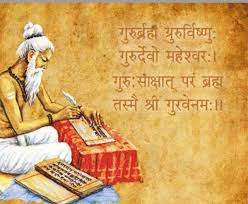 गुरुर्ब्रह्मा गुरुर्विष्णुः
गुरुर्देवो महेश्वरः।
गुरुः साक्षात् परं ब्रह्म
तस्मै श्री गुरवेनमः॥